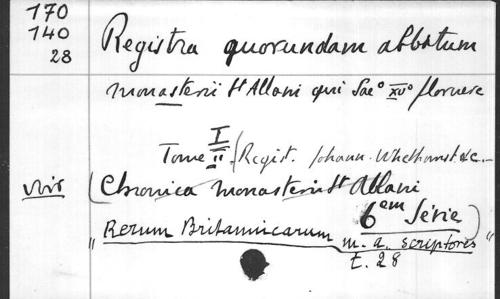 170
140
28
Registra quorundam abbatum
monasterii St Albani qui Saeo XVo floruere
Tome I
II (Regist. Johann. Whethamst. &c.
voir (Chronica monasterii St Albani
6em Série)
" Rerum Britannicarum m. a. scriptores "
t. 28